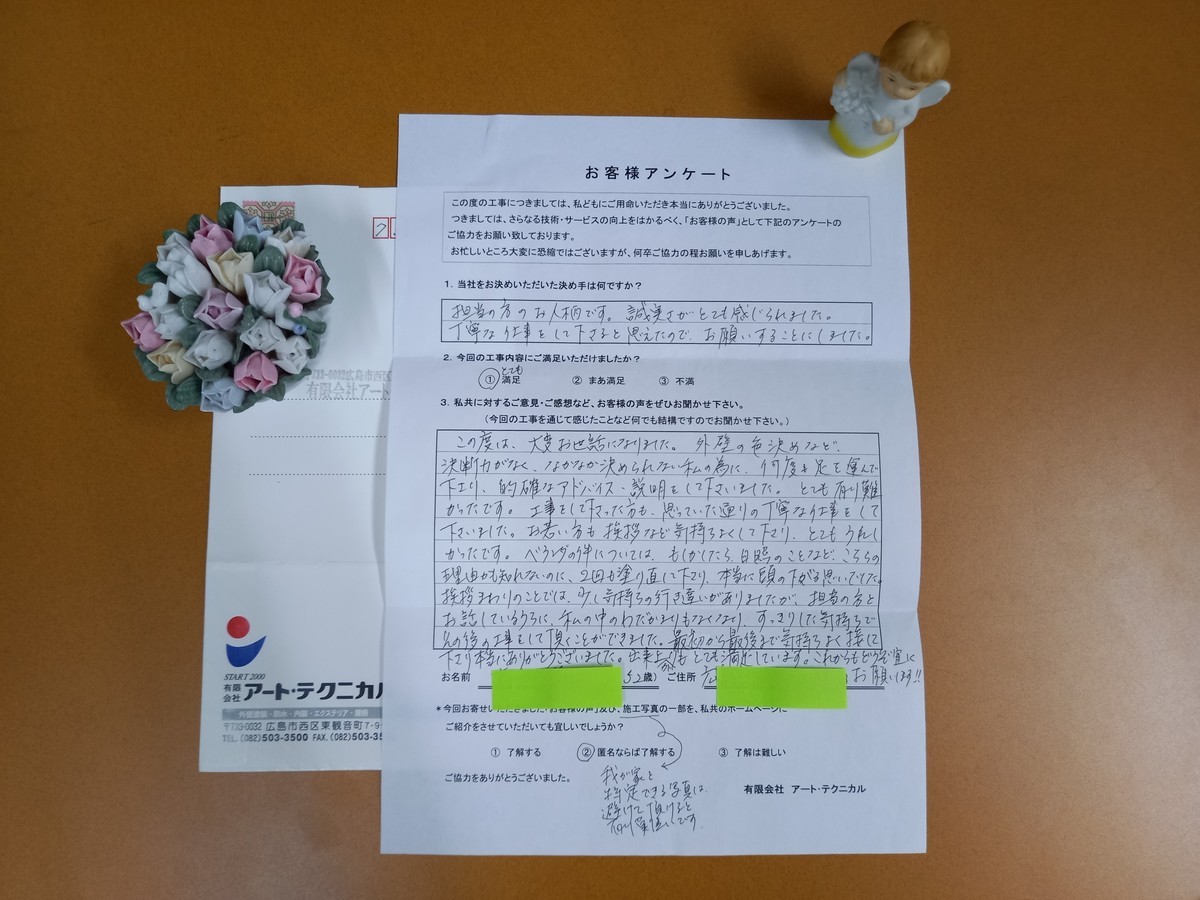 お客様アンケート
この度の工事につきましては、私どもにご用命いただき本当にありがとうございました。
つきましては、さらなる技術・サービスの向上をはかるべく、「お客様の声」として下記のアンケートの
ご協力をお願い致しております。
お忙しいところ大変に恐縮ではございますが、何卒ご協力の程お願いを申しあげます。
1．当社をお決めいただいた決め手は何ですか？
担当の方のお人柄です。誠実さがとても感じられました。
丁寧な仕事をして下さると思えたので、お願いすることにしました。
2．今回の工事内容にご満足いただけましたか？
とても
① 満足 ② まあ満足 ③ 不満
3．私共に対するご意見・ご感想など、お客様の声をぜひお聞かせ下さい。
（今回の工事を通じて感じたことなど何でも結構ですのでお聞かせ下さい。）
この度は、大変お世話になりました。外壁の色決めなど、
決断力がなく、なかなか決められない私の為に、何度も足を運んで
下さり、的確なアドバイス、説明をして下さいました。とても有り難
かったです。工事をして下さった方も、思っていた通りの丁寧な仕事をして
下さいました。お若い方も挨拶など気持ちよくして下さり、とてもうれし
かったです。ベランダの件については、もしかしたら日照のことなど、こちらの
理由かも知れないのに、2回も塗り直して下さり、本当に頭の下がる思いでした。
挨拶まわりのことでは、少し気持ちの行き違いがありましたが、担当の方と
お話しているうちに、私の中のわだかまりもなくなり、すっきりした気持ちで
その後の工事をして頂くことができました。最初から最後まで気持ちよく接して
下さり本当にありがとうございました。出来上がりもとても満足しています。これからもどうぞ宜しく
お願いします!!
お名前 52歳） ご住所 広
＊今回お寄せいただきました「お客様の声」及び、施工写真の一部を、私共のホームページに
ご紹介をさせていただいても宜しいでしょうか？
① 了解する ② 匿名ならば了解する ③ 了解は難しい
我が家と
特定できる写真は
避けて頂けると
有り難いです。
ご協力をありがとうございました。
有限会社 アート・テクニカル
〒733-0032広島市西区
有限会社アート
START 2000
有限会社 アート・テクニカル
外壁塗装・防水・内装・エクステリア・看板
〒733-0032 広島市西区東観音町7-9-
TEL.(082)503-3500 FAX.(082)503-35